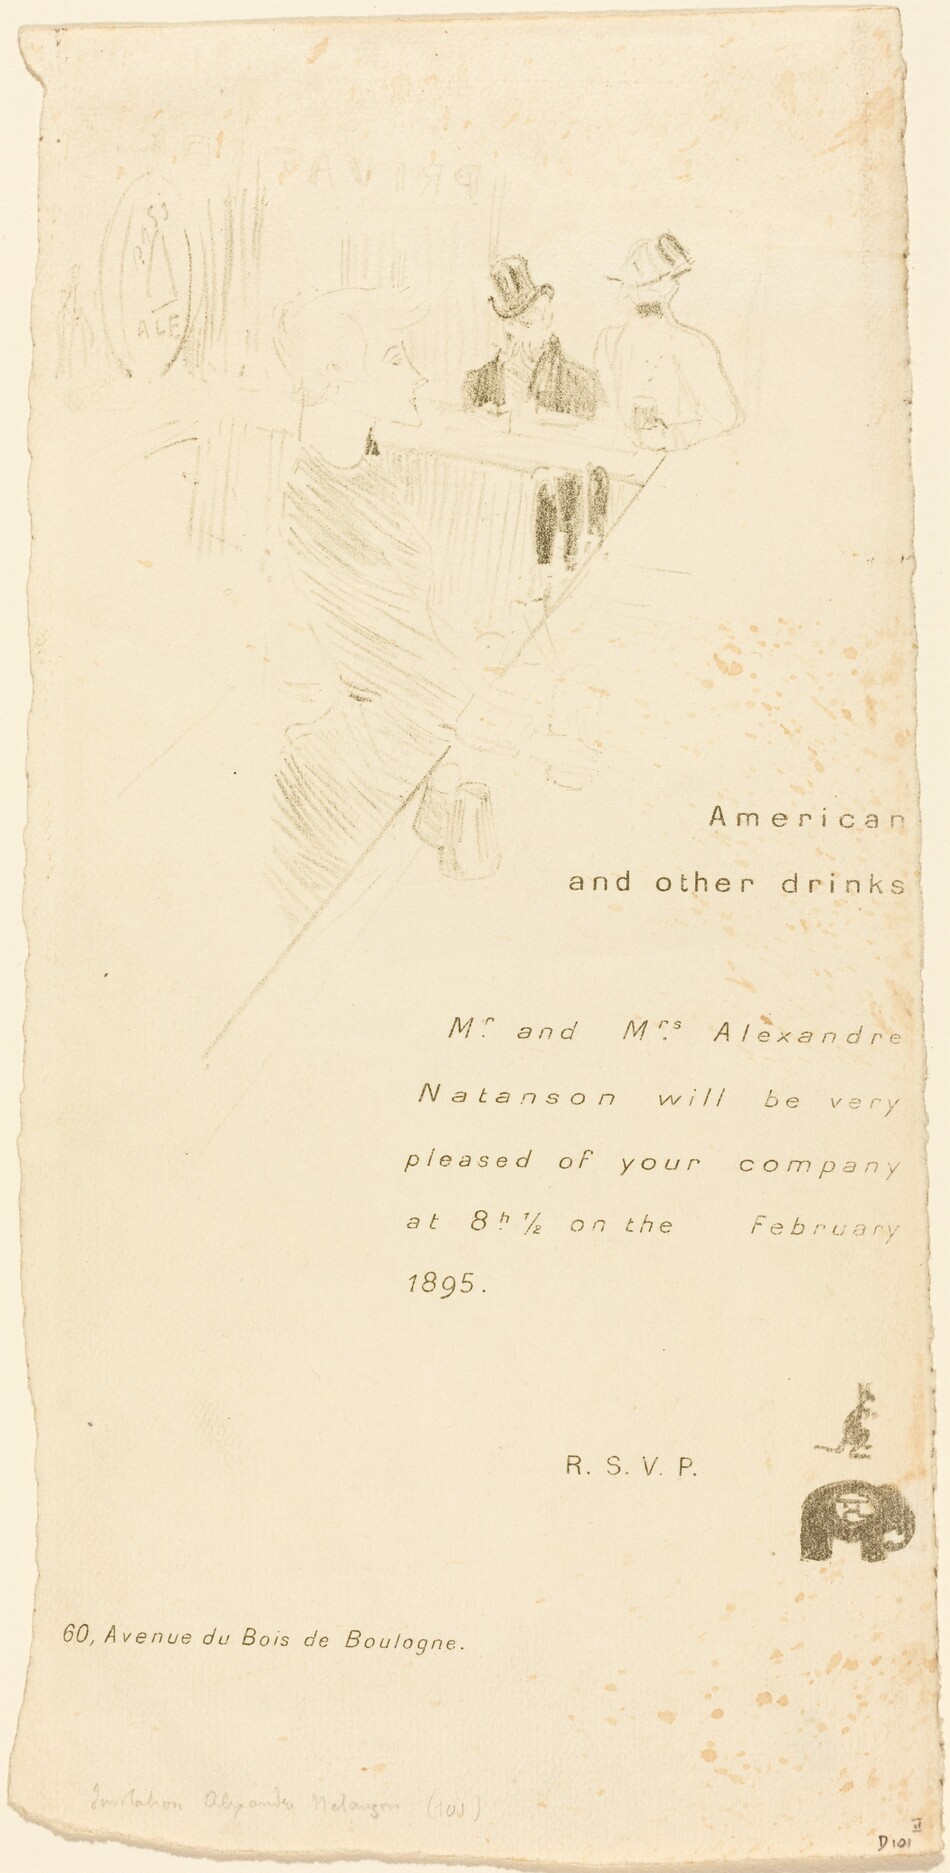 PRIVAT
BASS
ALE
American
and other drinks
Mr. and Mrs. Alexandre
Natanson will be very
pleased of your company
at 8h 1/2 on the February
1895.
R. S. V. P.
60, Avenue du Bois de Boulogne.
Invitation Alexandre Natanson (101)
D 101 II